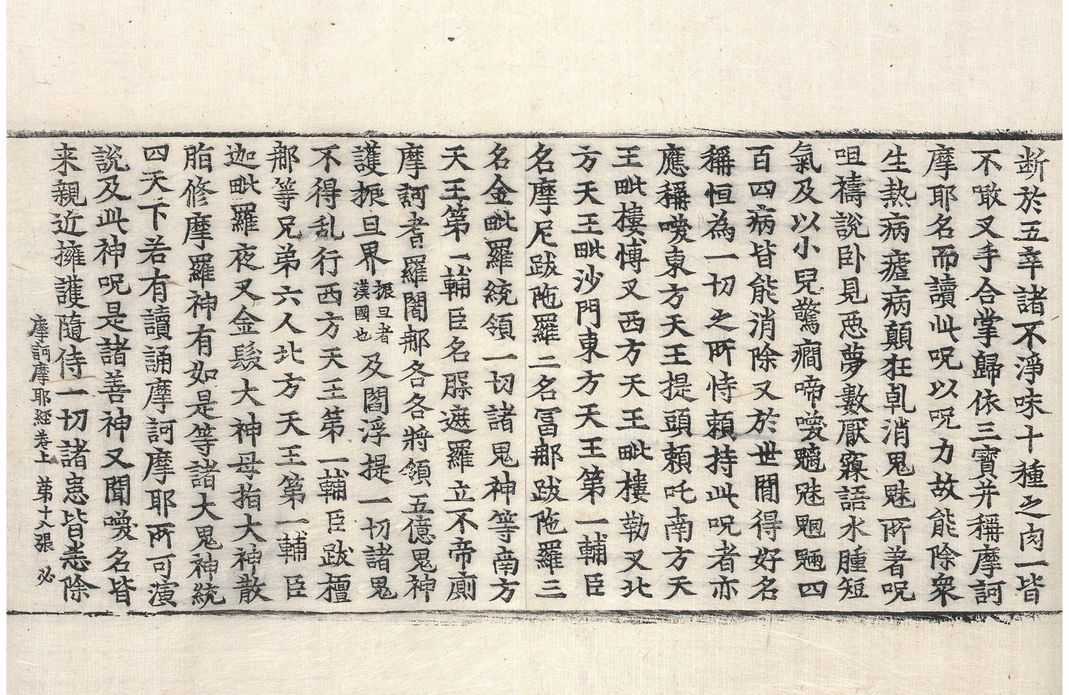 断於五辛諸不淨味十種之肉一皆
不噉叉手合掌歸依三寶并稱摩訶
摩耶名而讀此呪以呪力故能除衆
生熱病瘧病顛狂乹消鬼魅所著呪
咀禱說卧見惡夢數厭寱語水腫短
氣及以小兒驚癎啼嗳魑魅魍魎四
百四病皆能消除又於世間得好名
稱恒為一切之所恃頼持此呪者亦
應稱嗳東方天王提頭頼吒南方天
王毗樓愽叉西方天王毗樓勒叉北
方天王毗沙門東方天王第一輔臣
名摩尼跋陁羅二名冨那跋陁羅三
名金毗羅統領一切諸鬼神等南方
天王第一輔臣名臎遮羅立不帝廁
摩訶耆羅閣那各各將領五億鬼神
護振旦界振旦者漢國也及閻浮提一切諸鬼
不得乱行西方天王第一輔臣跋檀
那等兄弟六人北方天王第一輔臣
迦毗羅夜叉金髮大神母指大神散
脂修摩羅神有如是等諸大鬼神統
四天下若有讀誦摩訶摩耶所可演
說及此神呪是諸善神又聞嗳名皆
来親近擁護隨侍一切諸患皆悉除
摩訶摩耶経卷上 第十八張 必